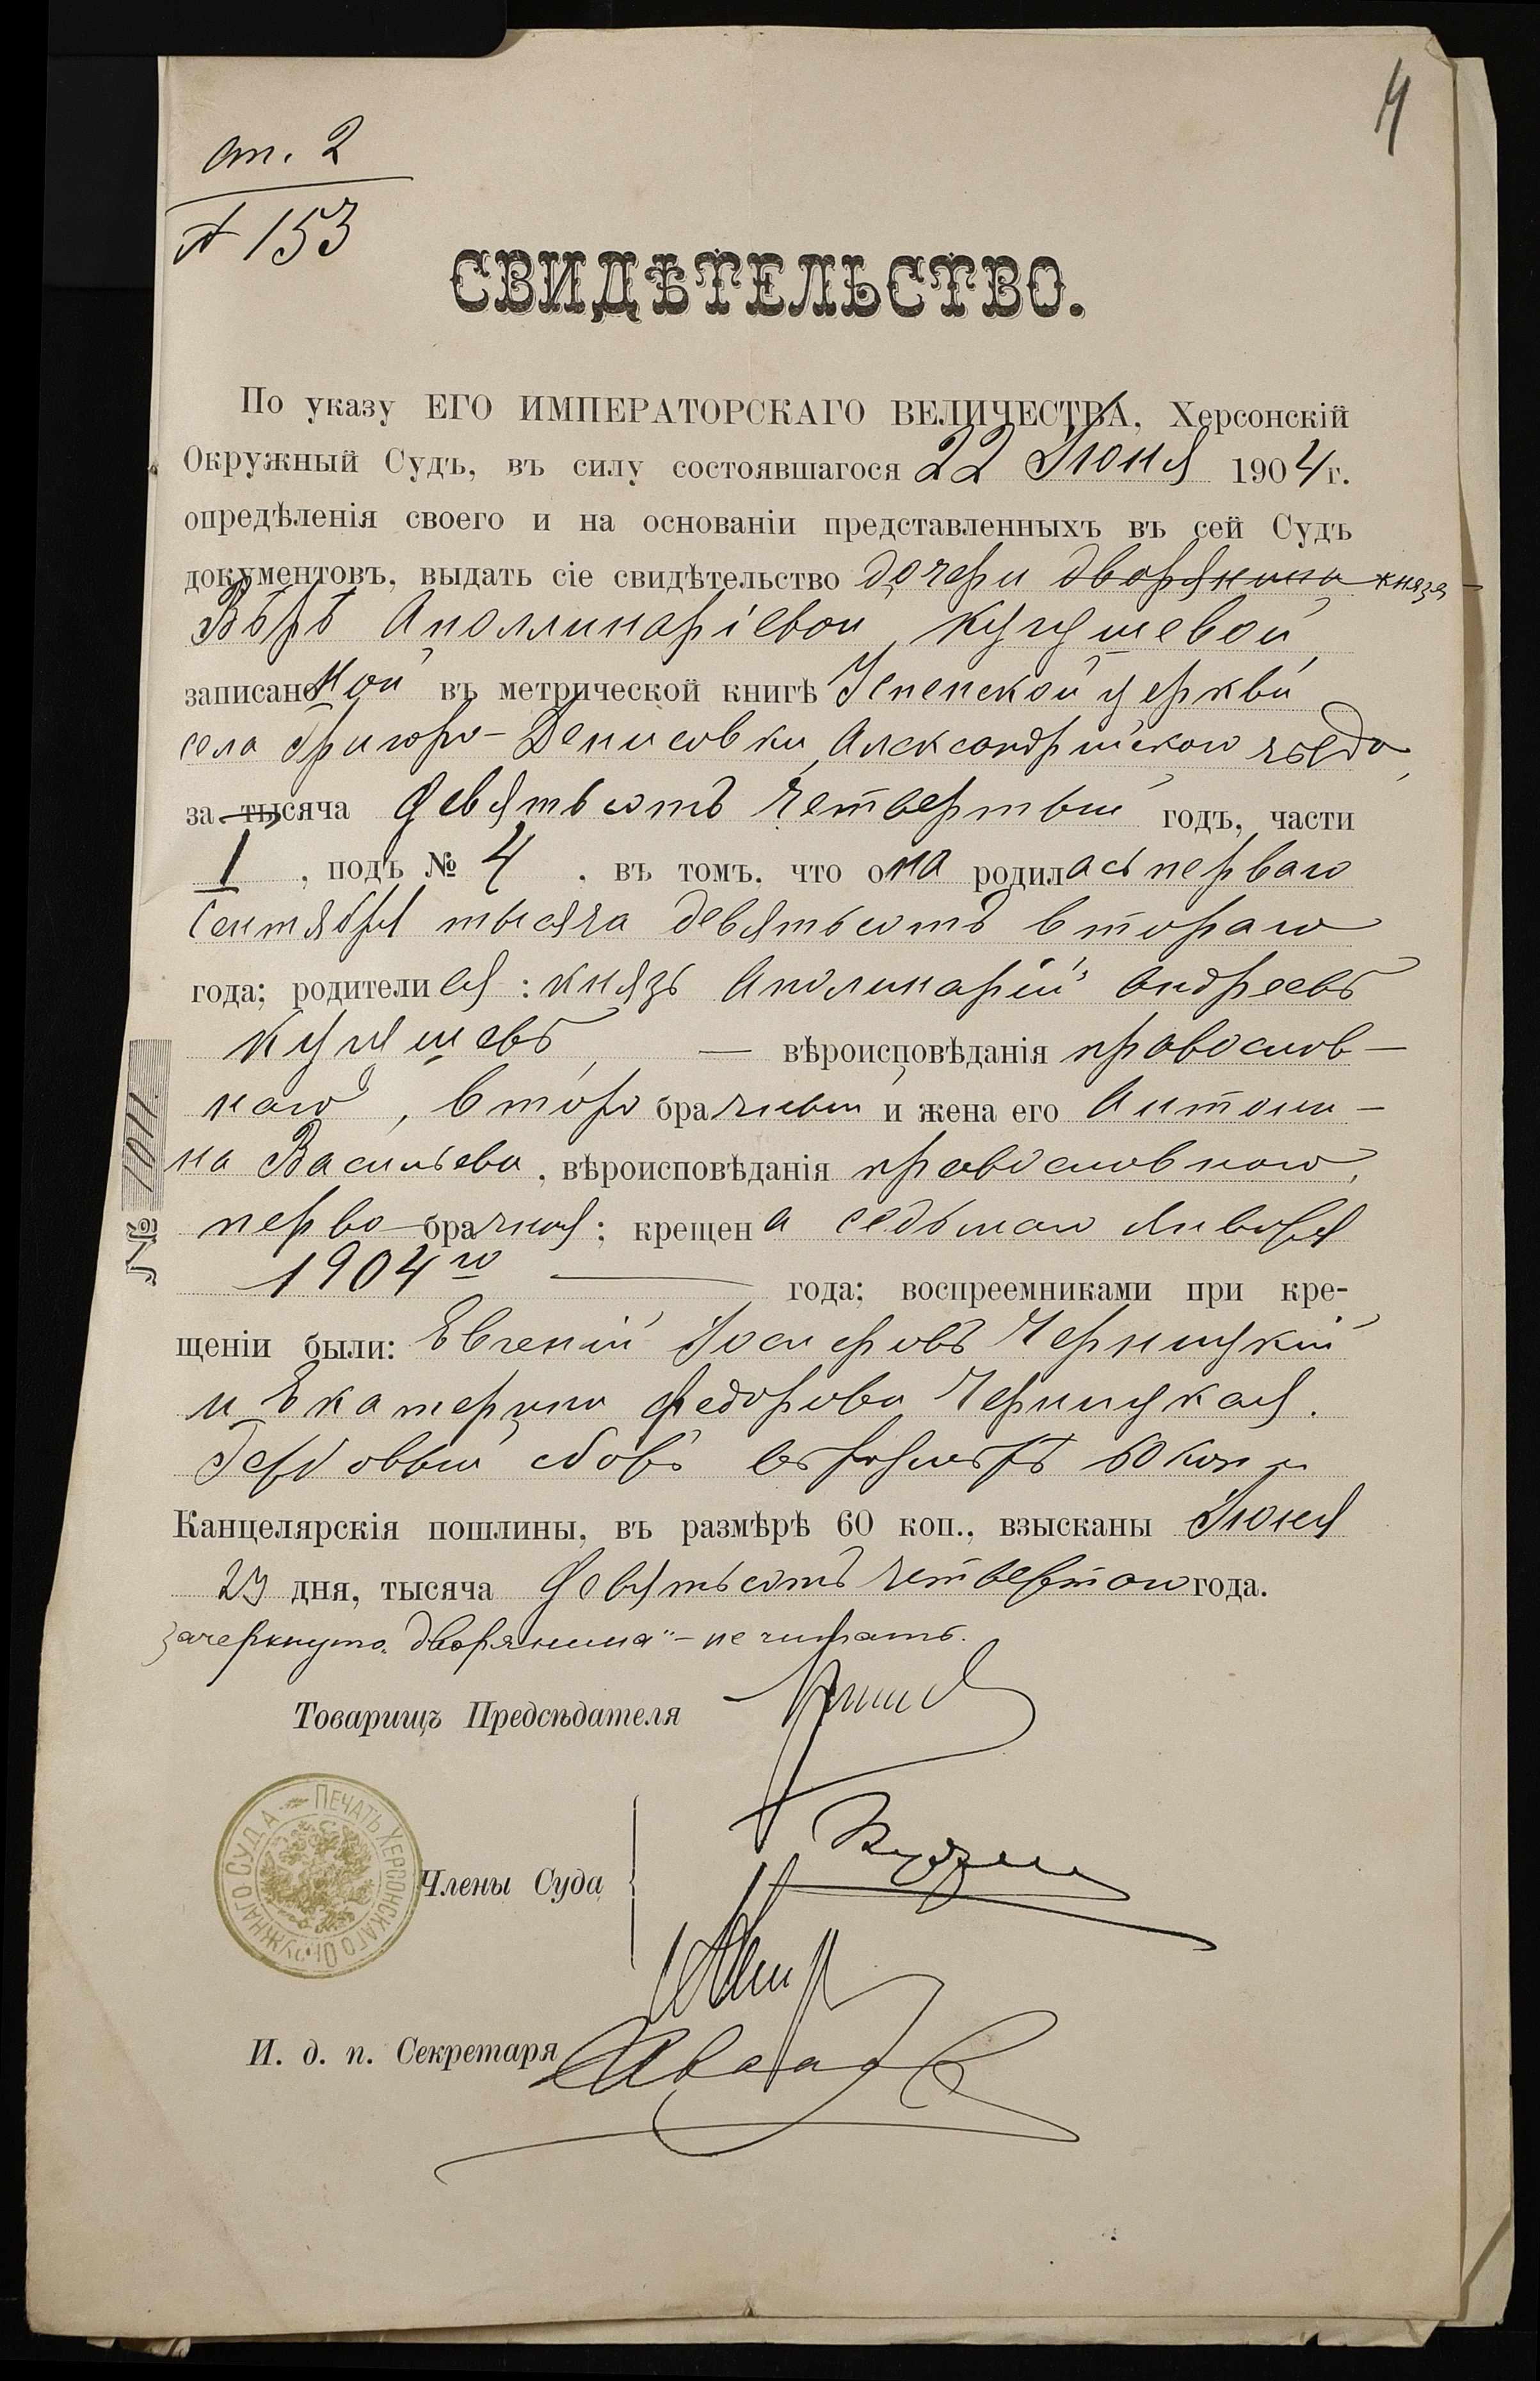 4
от. 2
№ 153
СВИДѢТЕЛЬСТВО.
По указу ЕГО ИМПЕРАТОРСКАГО ВЕЛИЧЕСТВА, Херсонскій
Окружный Судъ, въ силу состоявшагося 22 Іюня 1904 г.
опредѣленія своего и на основаніи представленныхъ въ сей Судъ
документовъ, выдать сіе свидѣтельство дочери дворянина князя
Вѣрѣ Аполлинаріевой Кугушевой,
записанной въ метрической книгѣ Успенской церкви
села Григоро-Денисовки, Александрійскаго уѣзда,
за тысяча девятьсотъ четвертый годъ, части
I, подъ № 4, въ томъ, что она родилась перваго
Сентября тысяча девятьсотъ втораго
года; родители ея: князь Аполинарій Андреевъ
Кугушевъ, — вѣроисповѣданія православ-
наго, второбрачный и жена его Антони-
на Васильева, вѣроисповѣданія православнаго,
первобрачная; крещена седьмаго Января
1904 го — года; воспреемниками при кре-
щеніи были: Евгеній Іосифовъ Черницкій
и Екатерина Федорова Черницкая.
Гербовый сборъ въ размѣрѣ 60 коп и
Канцелярскія пошлины, въ размѣрѣ 60 коп., взысканы Іюня
23 дня, тысяча девятьсотъ четвертаго года.
Зачеркнуто „дворянина" - не читать.
Товарищъ Предсѣдателя
Члены Суда
И. д. п. Секретаря
№ 1011.
ПЕЧАТЬ ХЕРСОНСКАГО ОКРУЖНАГО СУДА